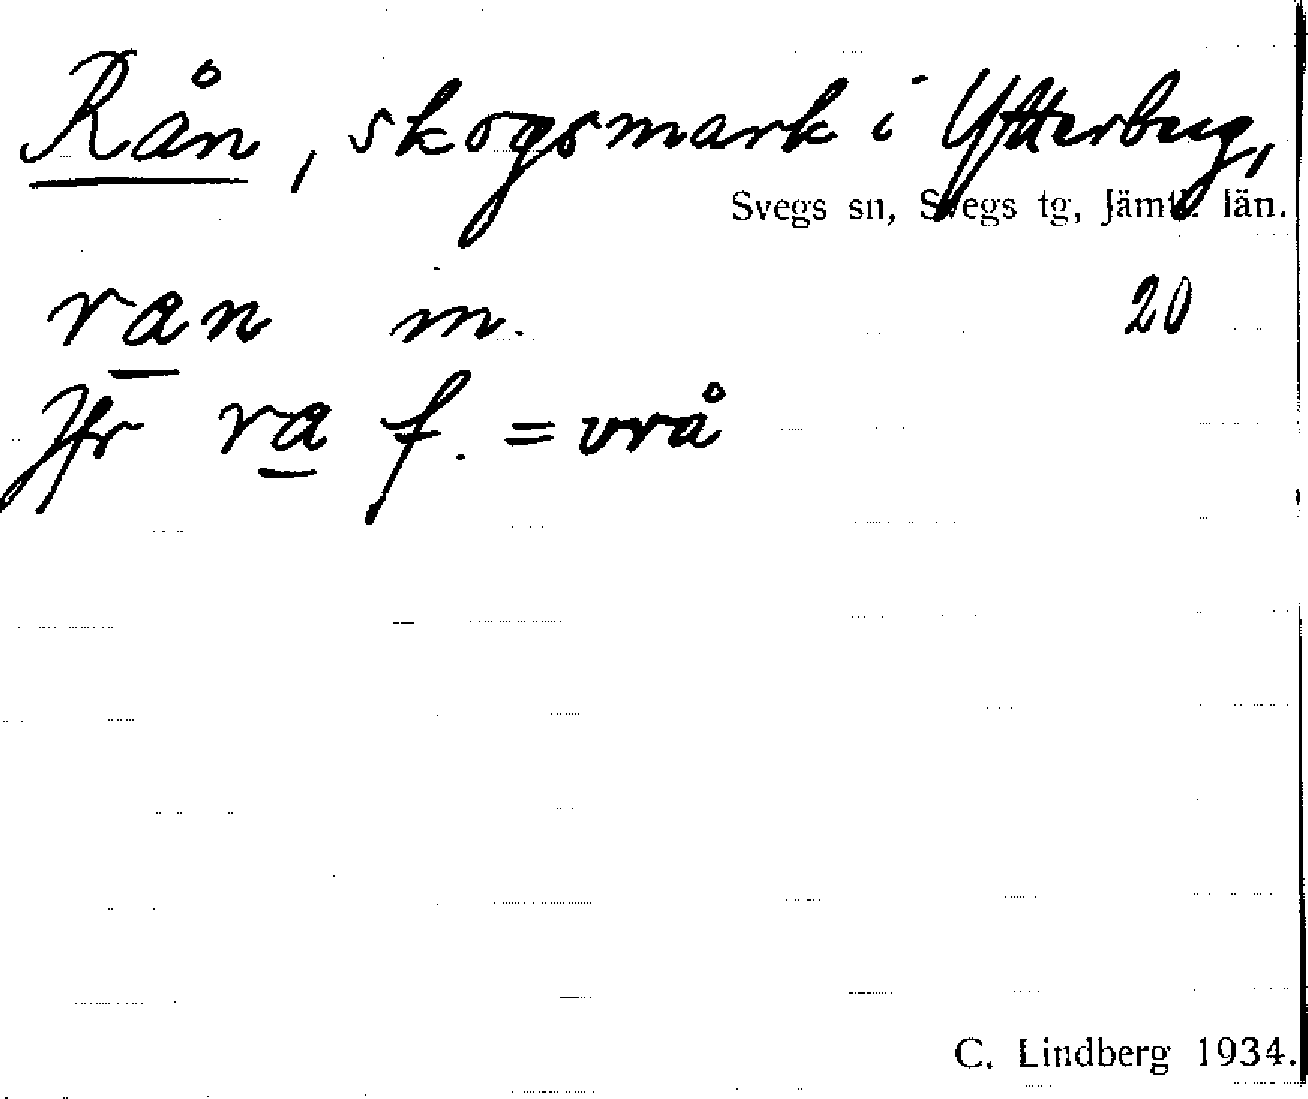 Rån, skogsmark i Ytterberg,
Svegs sn, Svegs tg, Jämtl. län.
ran m. 20
Jfr ra f. = vrå
C. Lindberg 1934.